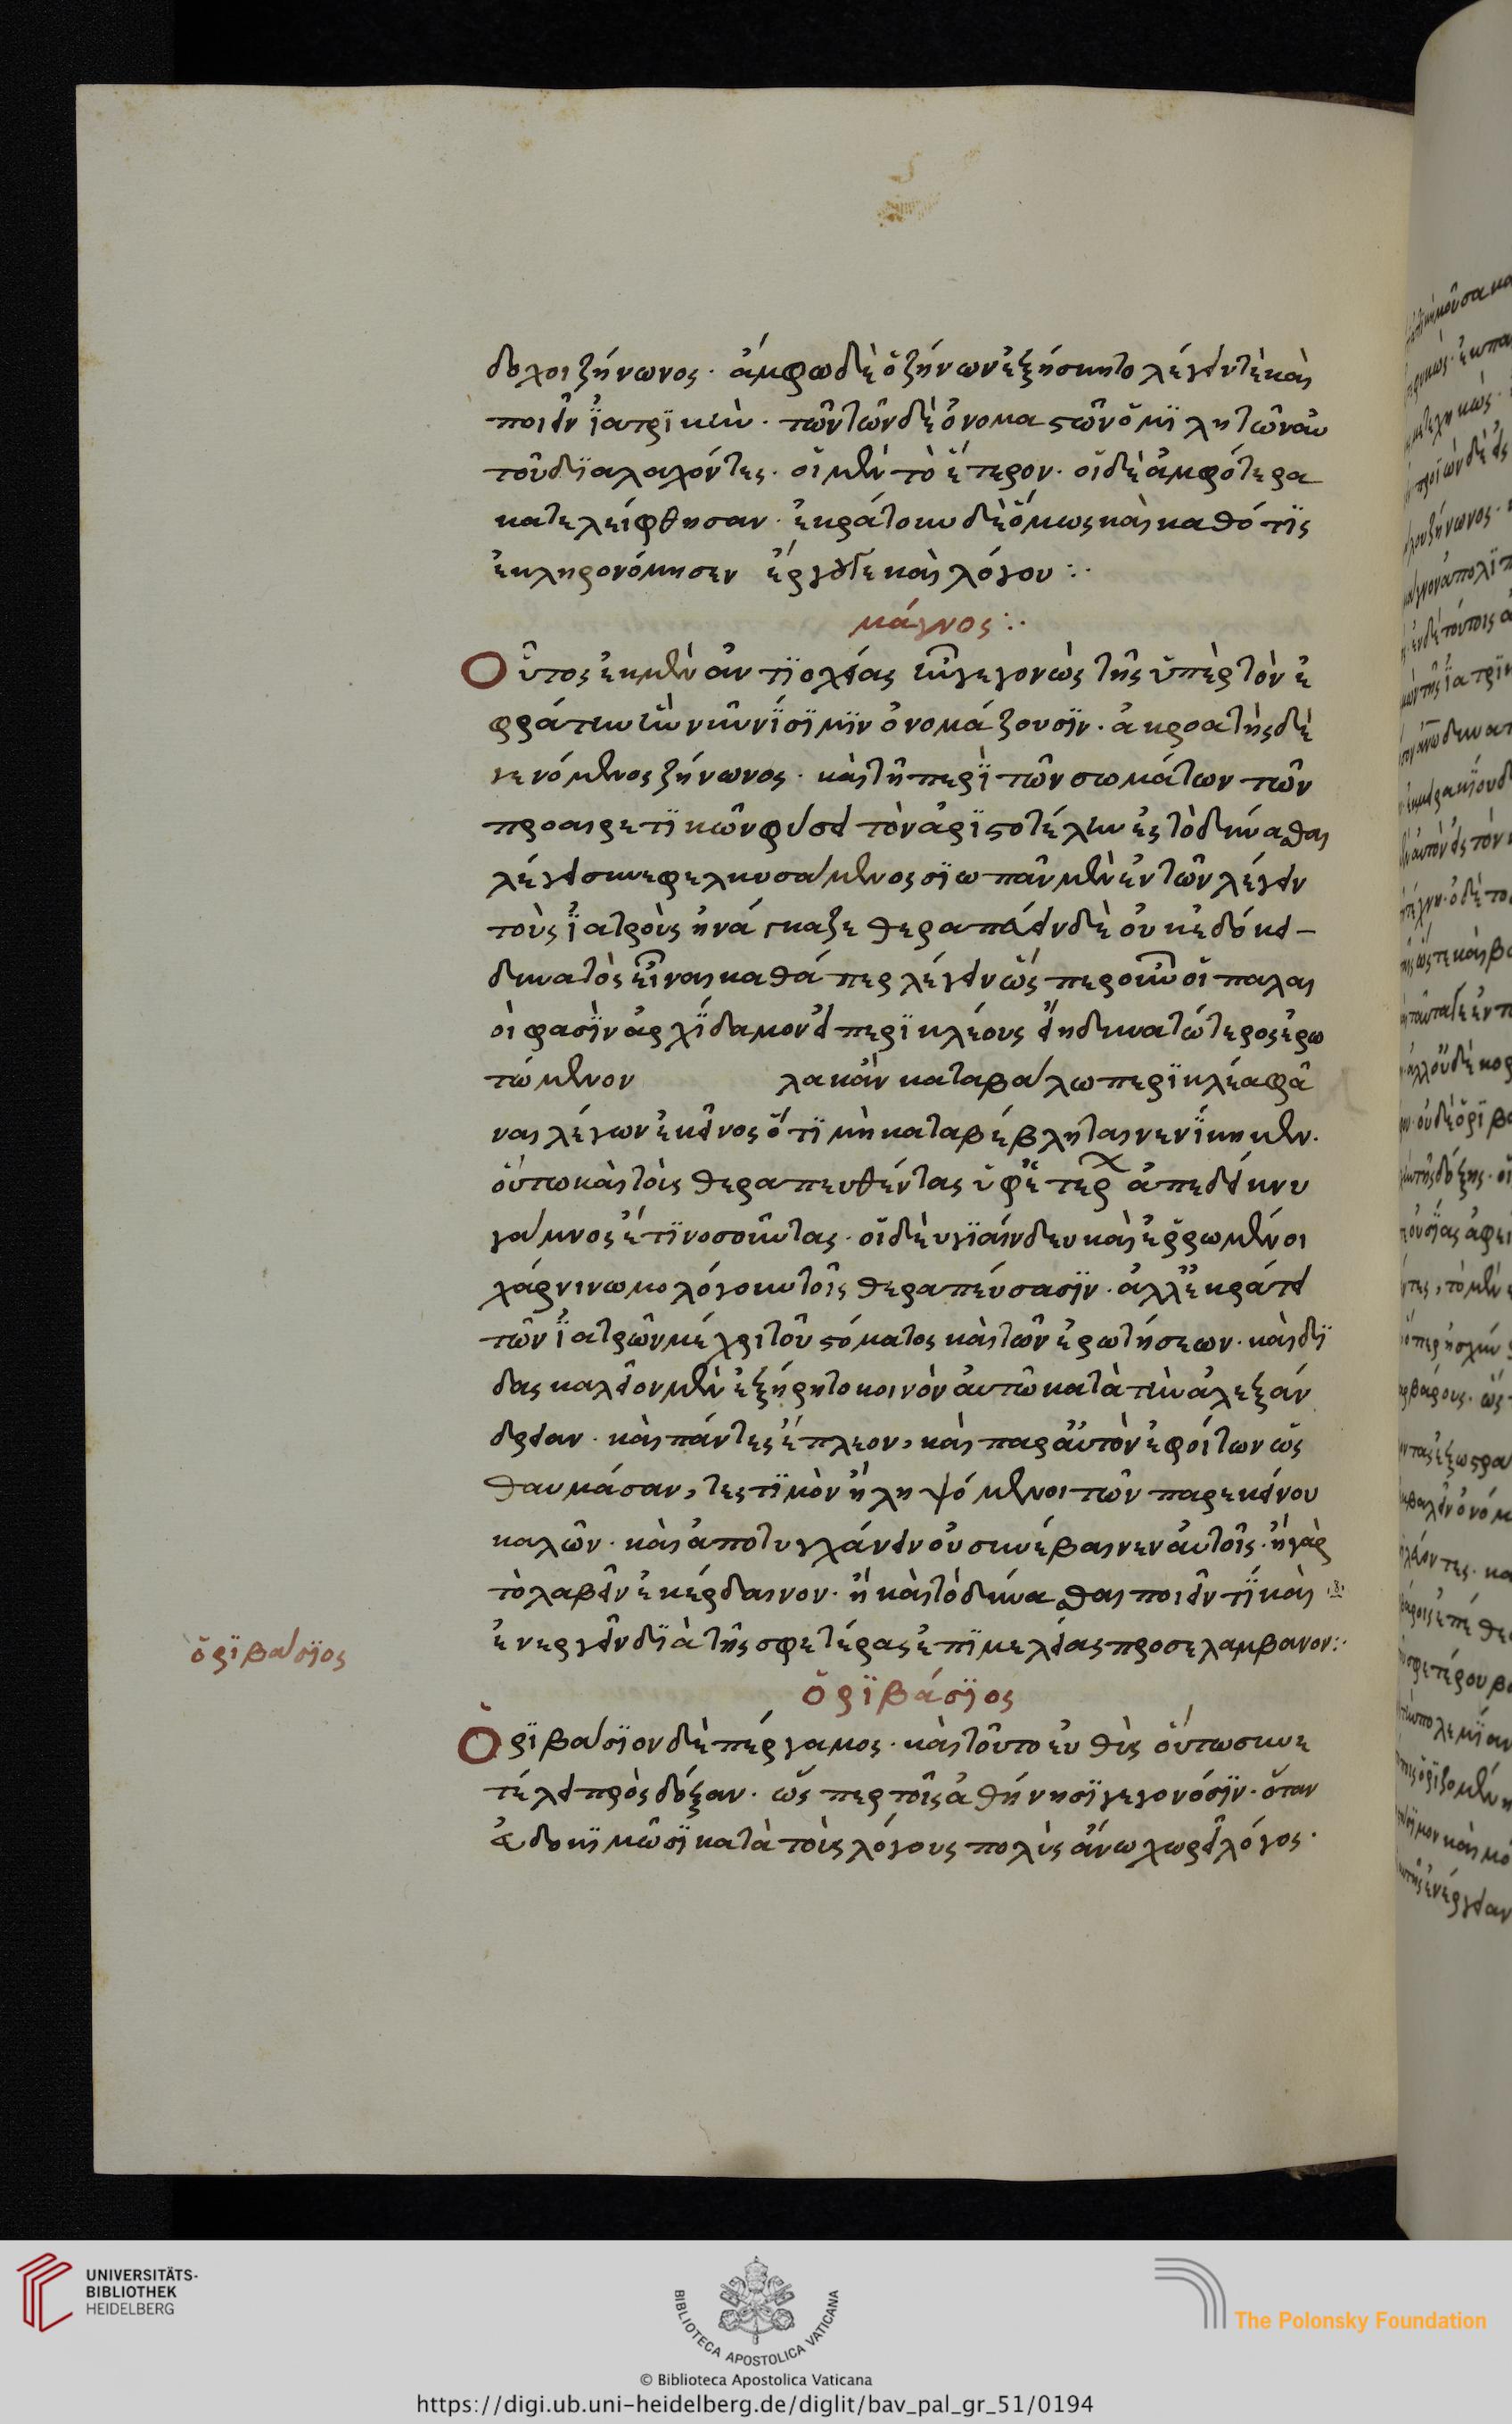 δοχοι ζήνωνος· ἄμφω δὲ ὁ ζήνων ἐξήσκητο λέγειν τὲ καὶ
ποιεῖν ἰατρικὴν· τῶν τῶν δὲ ὀνομαστῶν ὁμιλητῶν αὐ
τοῦ διαλαχόντες· οἱ μὲν τὸ ἕτερον· οἱ δὲ ἀμφότερα
κατελείφθησαν· ἐκράτουν δὲ ὅμως καὶ καθό τις
ἐκληρονόμησεν ἔργου τε καὶ λόγου:·
μάγνος:·
Οὗτος ἐκ μὲν ἀντιοχείας ἦν γεγονὼς τῆς ὑπὲρ τὸν ἐ
φράτην ἣν νῦν νίσιμιν ὀνομάζουσιν· ἀκροατὴς δὲ
γενόμενος ζήνωνος· καὶ τῇ περὶ τῶν σωμάτων τῶν
προαιρετικῶν φύσει τὸν ἀριστοτέλην ἐς τὸ δύνασθαι
λέγει συνεφελκυσάμενος σιωπᾶν μὲν ἐν τῶν λέγειν
τοὺς ἰατροὺς ἠνάγκαζε θεραπεύειν δὲ οὐκ ἐδόκει
δυνατὸς εἶναι καθάπερ λέγειν ὥσπερ οὖν οἱ παλαι
οὶ φασὶν ἀρχίδαμον εἰ περικλέους εἴη δυνατώτερος ἐρω
τώμενον λα κἂν καταβάλω περικλέα φᾶ
ναι λέγων ἐκεῖνος ὅτι μὴ καταβέβληται νενίκηκεν.
οὕτω καὶ τοὶς θεραπευθέντας ὑφ' ἑτέρ ἀπεδείκνυ
γαμνος ἔτι νοσοῦντας· οἱ δὲ υγιαίνδευ καὶ ἐῤῥωμένοι
χάρνιν ωμολόγουν τοῖς θεραπεύσασιν· ἀλλ' ἐκράτει
τῶν ἰατρῶν μέχρι τοῦ στόματος καὶ τῶν ἐρωτήσεων· καὶ δι
δας καλεῖον μὲν ἐξήρητο κοινὸν ἀυτῶ κατὰ τὴν ἀλεξάν
δρειαν· καὶ πάντες ἔπλεον, καὶ παρ' ἀυτὸν ἐφοίτων ὡς
θαυμάσαν, τες τιμὸν ἢ ληψόμενοι τῶν παρεκείνου
καλῶν· καὶ ἀποτυγχάνειν οὐ συνέβαινεν ἀυτοῖς· ἢ γὰρ
τὸ λαβεῖν ἐκέρδαινον· ἢ καὶ τὸ δύνασθαι ποιεῖν τἰ καὶ
ἐνεργεῖν διὰ τῆς σφετέρας ἐπιμελείας προσελαμβανον:·
ὀριβάσιος
ὀριβάσιος
Ὀριβάσιον δὲ πέργαμος· καὶ τοῦτο ευθὶς οὕτω συνε
τέλει πρὸς δόξαν· ὥσπερ τοῖς ἀθήνησι γεγονόσιν· ὅταν
ἐυδοκιμῶσι κατὰ τοὶς λόγους πολὶς ἄνω χωρεῖ λόγος·
UNIVERSITÄTS-
BIBLIOTHEK
HEIDELBERG
BIBLIOTECA APOSTOLICA VATICANA
The Polonsky Foundation
© Biblioteca Apostolica Vaticana
https://digi.ub.uni-heidelberg.de/diglit/bav_pal_gr_51/0194